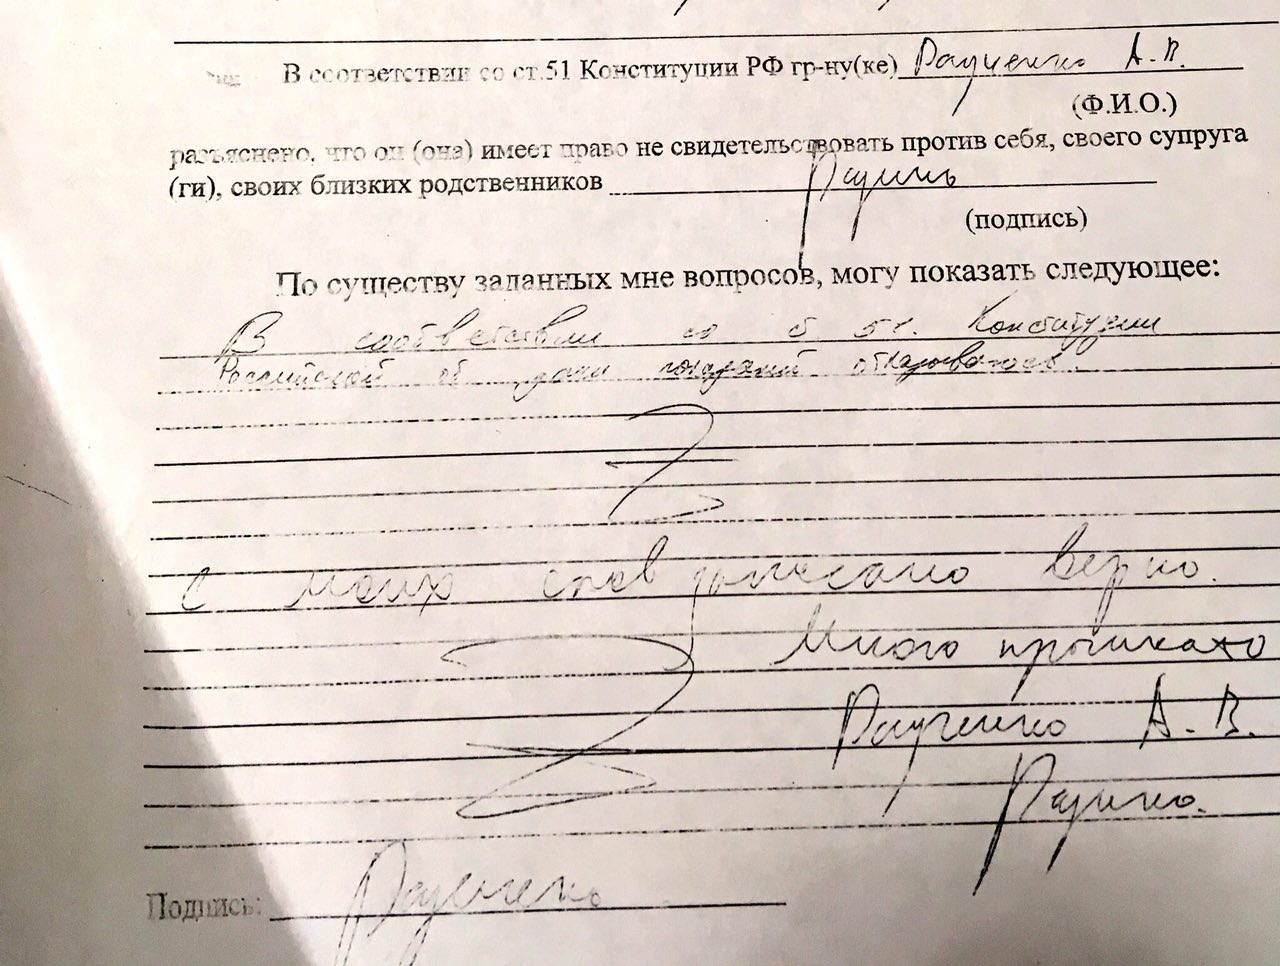 В соответствии со ст.51 Конституции РФ гр-ну(ке) Радченко А.В.
(Ф.И.О.)
разъяснено, что он (она) имеет право не свидетельствовать против себя, своего супруга
(ги), своих близких родственников
(подпись)
По существу заданных мне вопросов, могу показать следующее:
В соответствии со ст 51. Конституции
Российской от дачи показаний отказываюсь.
С моих слов записано верно.
Мною прочитано
Радченко А.В.
Подпись: